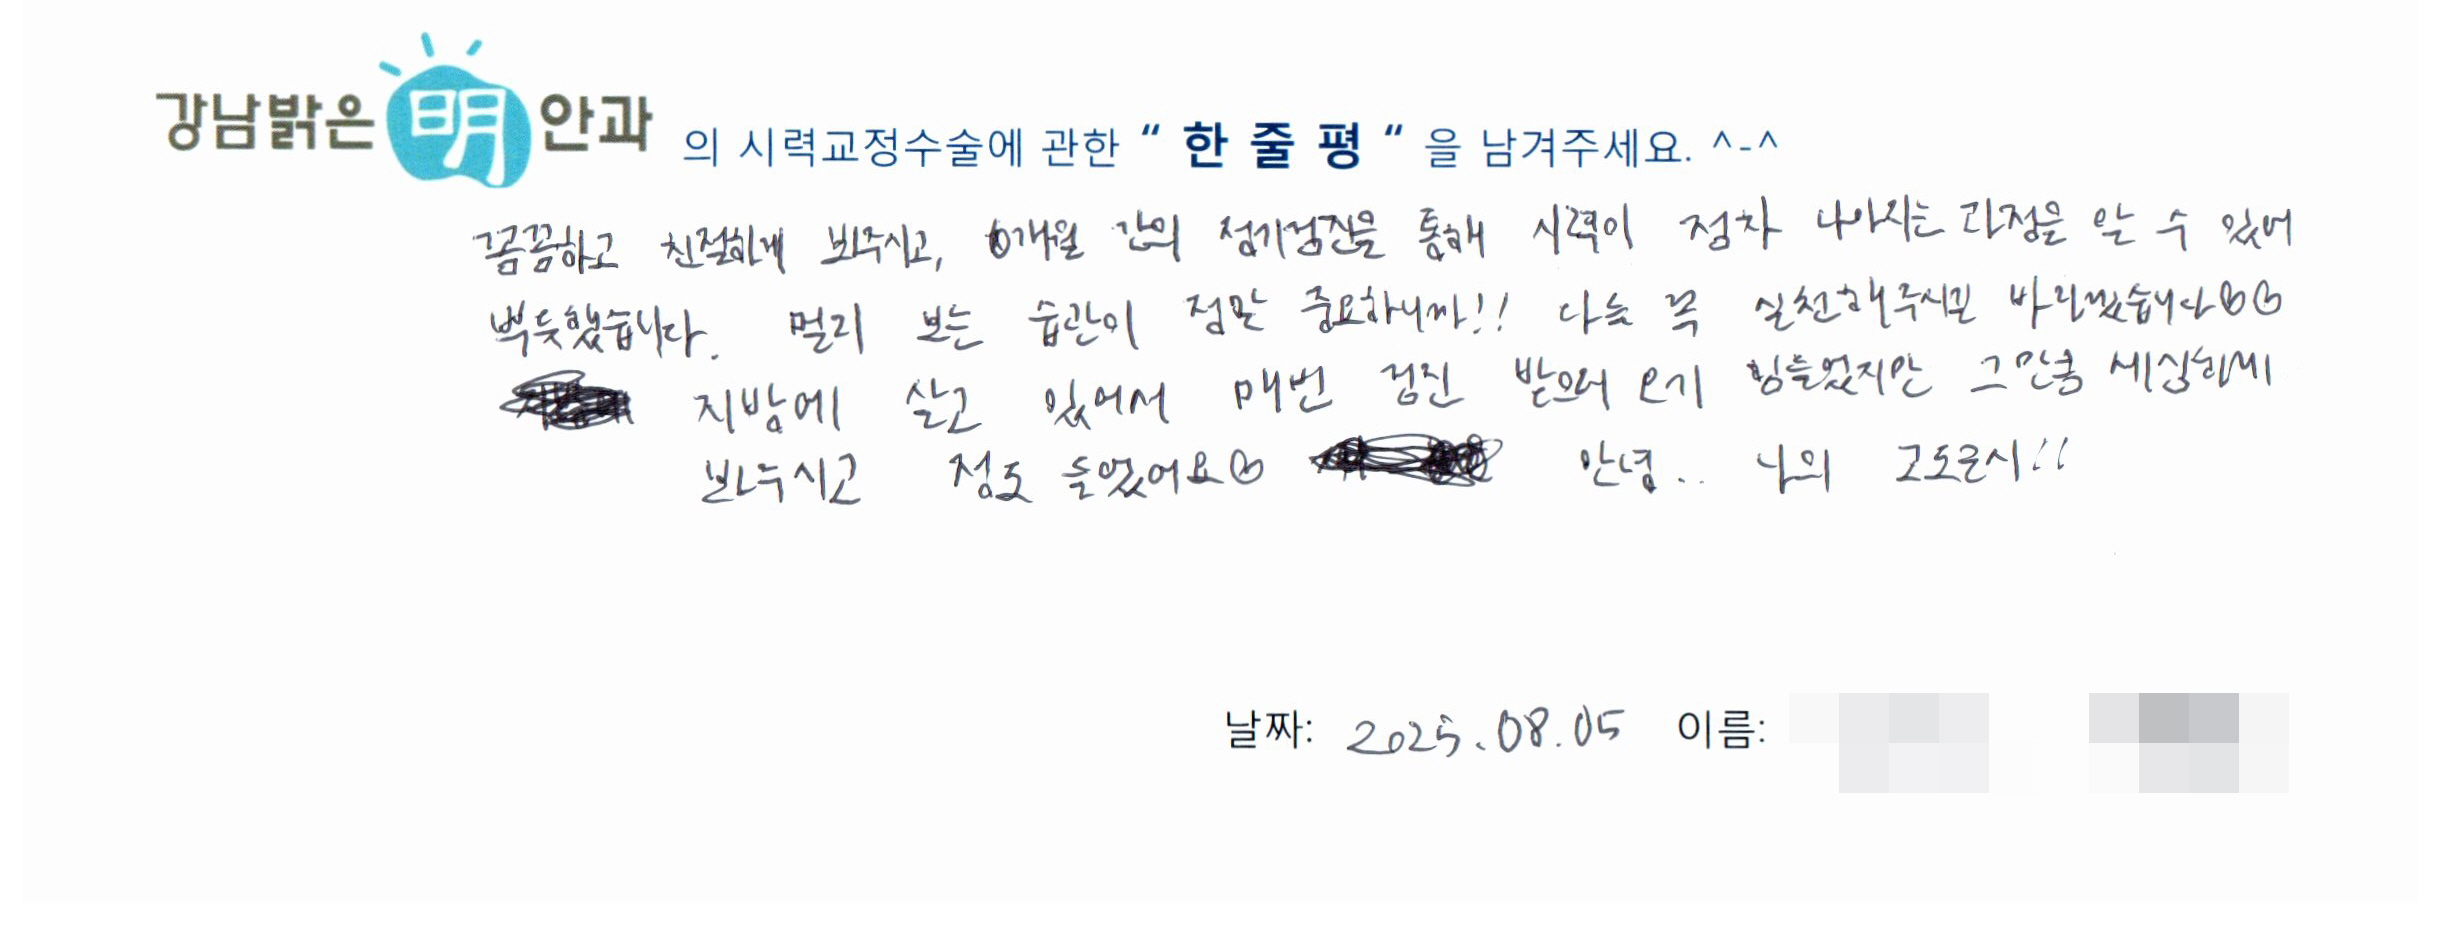 강남밝은明안과 의 시력교정수술에 관한 “ 한 줄 평 “ 을 남겨주세요. ^-^
꼼꼼하고 친절하게 봐주시고, 6개월 간의 정기검진을 통해 시력이 점차 나아지는 과정을 알 수 있어
뿌듯했습니다. 멀리 보는 습관이 정말 중요하니까!! 다늘 꼭 실천해주시길 바라겠습니다♡♡
지방에 살고 있어서 매번 검진 받으러 오기 힘들었지만 그만큼 세심하게
봐주시고 정도 들었어요♡ 안녕.. 나의 고도근시!!
날짜: 2025.08.05 이름: